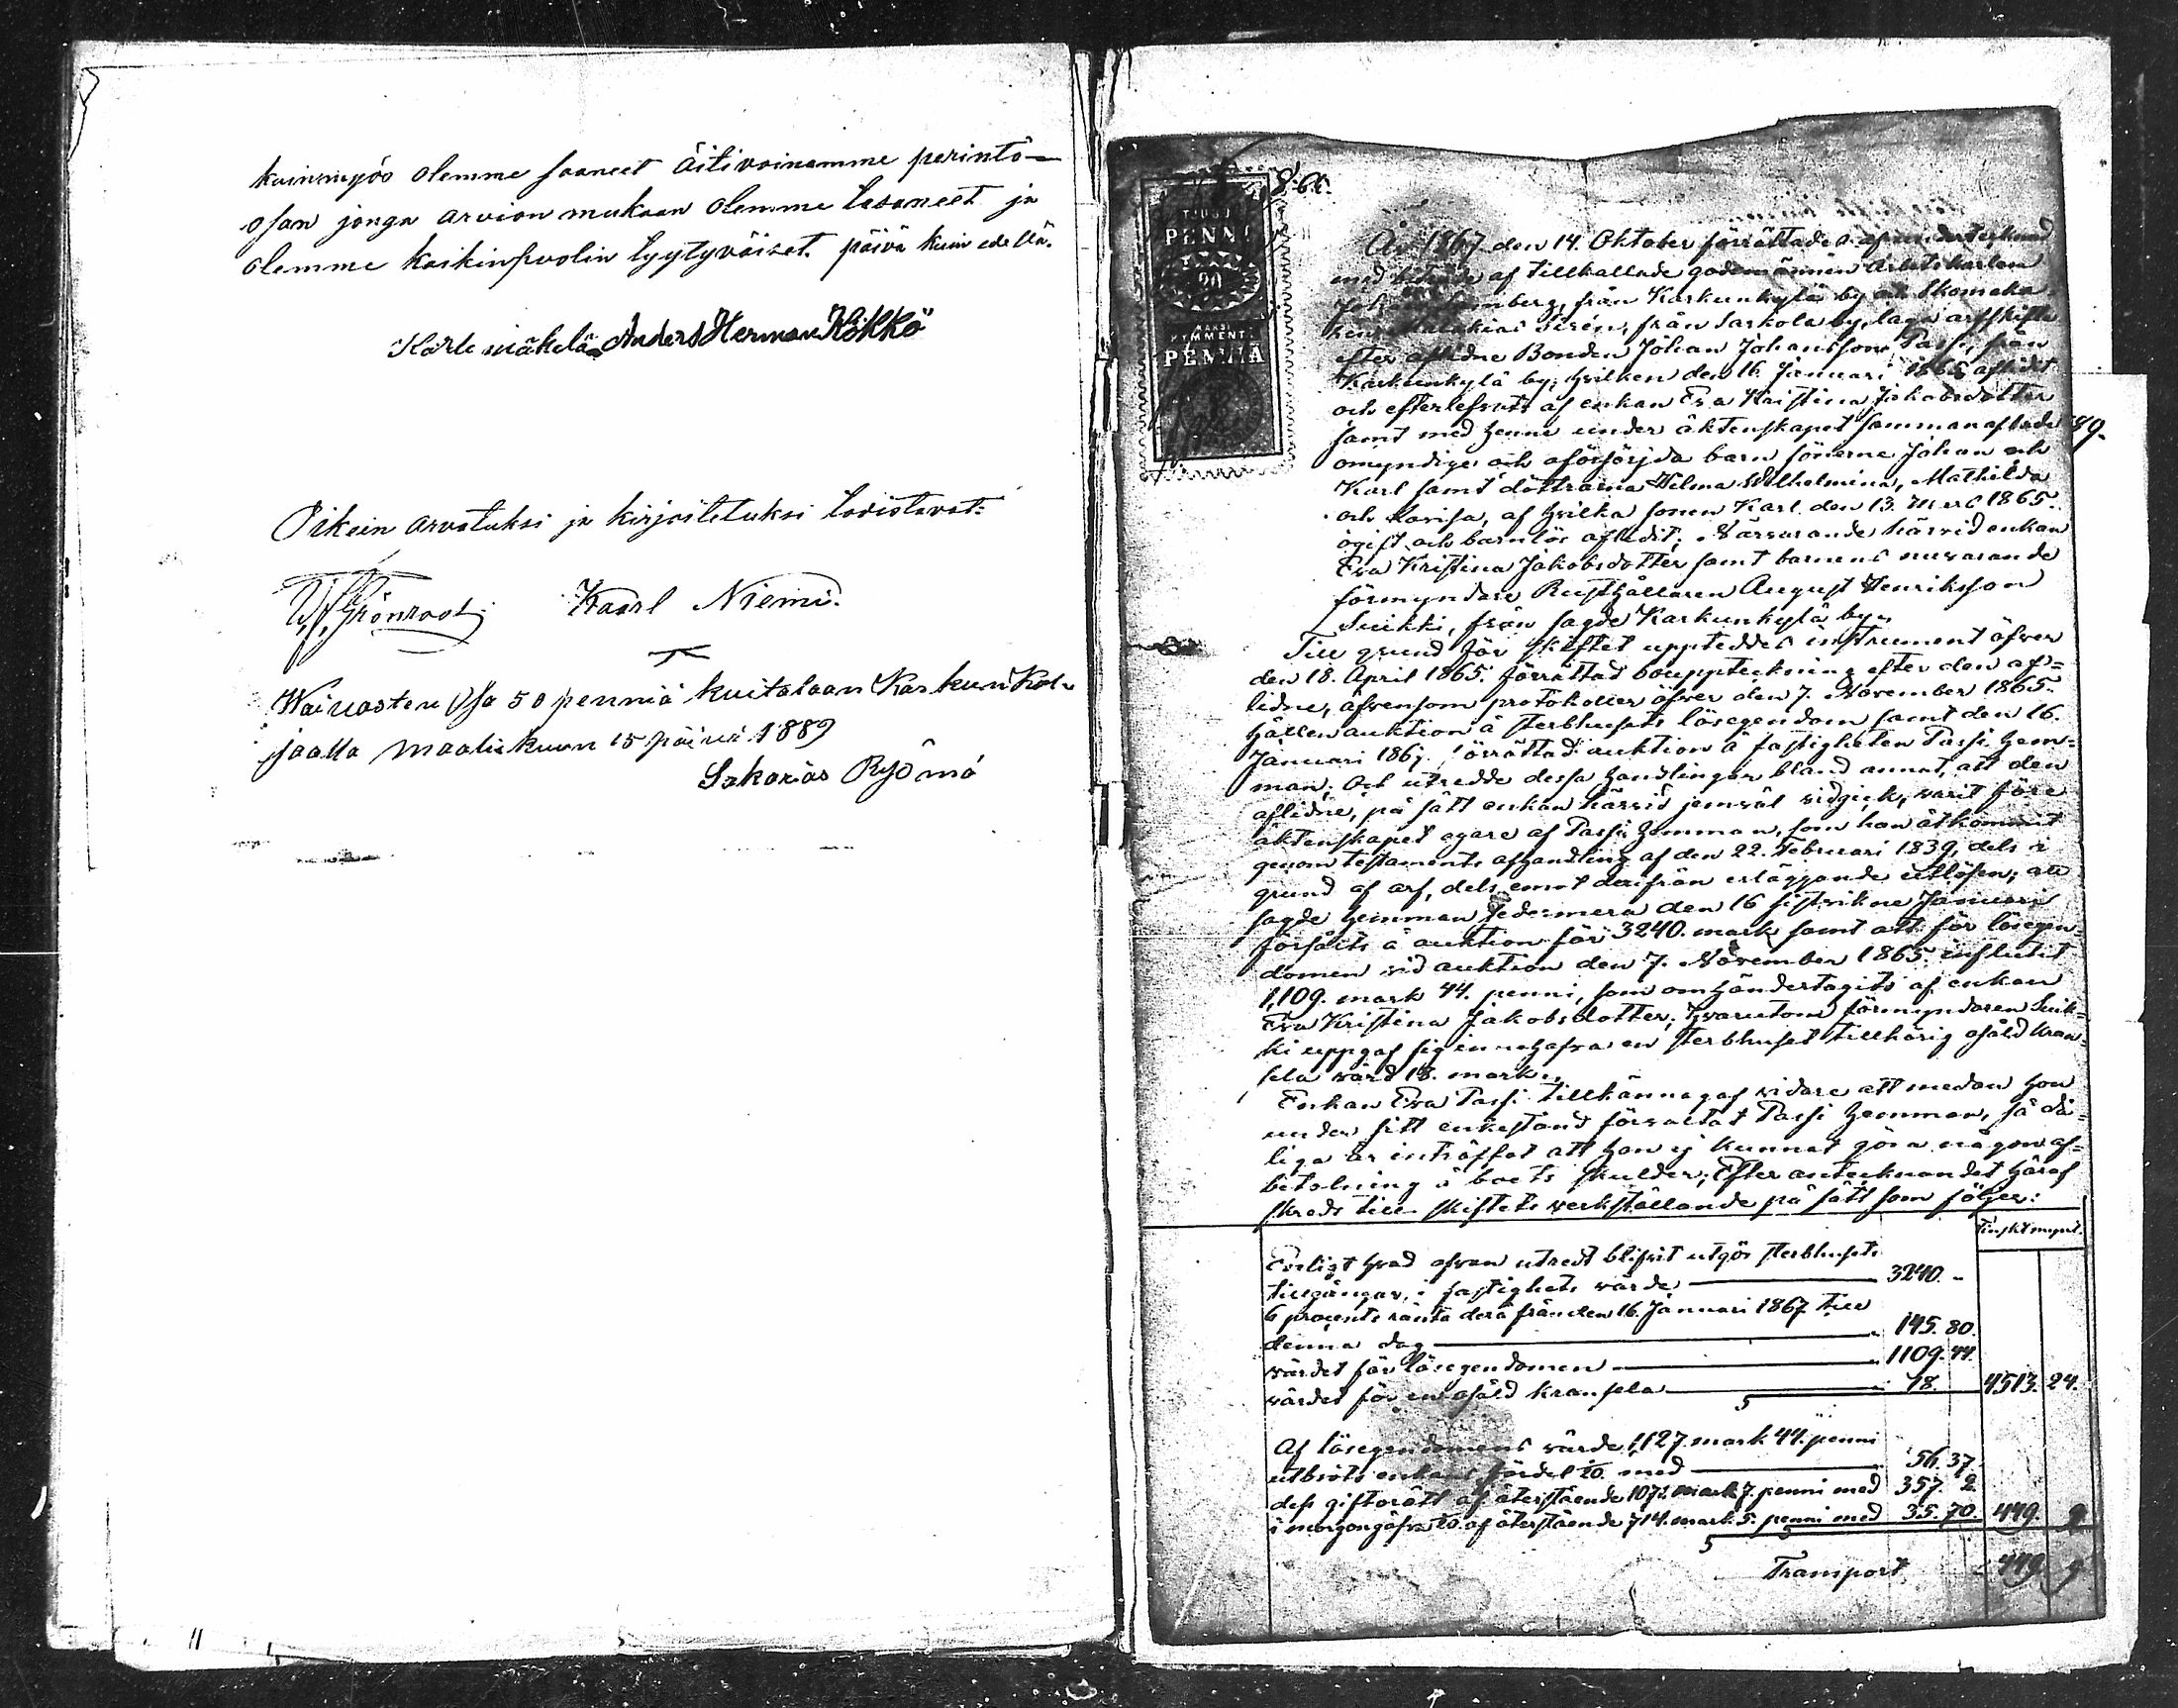 kuinmyös olemme saaneet äitivainamme perintö-
osan jonga arvion mukaan olemme lasaneet ja
olemme kaikinpuolin tyytyväiset. päivä kuin edellä.
Karle mäkelä Anders Herman Kökkö
Oikein arvatuksi ja kirjoitetuksi todistavat:
Grönroos Kaarl Niemi.
Waivasten Osa 50 penniä kuitataan Karkun Kok-
jaalla maaliskuun 15 päivä 1889
Sakarias Ryömä
TJUGU
PENNI
20
KAKSI
KYMMENTÄ
PENNIÄ
År 1867 den 14. Oktober förrättades af undertecknad
med biträde af tillkallade godemännen Arbetskarlen
från Karkunkylä by och Skomaka-
ren Malakias Sirén, från Sarkola by, laga arfskifte
efter aflidne Bonden Johan Johansson Passi, från
Karkunkylä by, hvilken den 16. Januari 1865 aflidit
och efterlefvats af enkan Eva Kristina Jakobsdotter
samt med henne under äktenskapet sammanaflade
omyndige och oförsörjda barn sönerne Johan och
Karl samt döttrarna Wilma Wilhelmina, Mathilda
och Lovisa, af hvilka sonen Karl den 13. Mars 1865
ogift och barnlös aflidit; Närvarande härvid enkan
Eva Kristina Jakobsdotter samt barnens nuvarande
förmyndare Rusthållaren August Henriksson
Suikki, från sagde Karkunkylä by.
89.
Till grund för skiftet uppteddes instrument öfver
den 18. April 1865. förrättad bouppteckning efter den af-
lidne, äfvensom protokoller öfver den 7. November 1865.
hållen auktion å sterbhusets lösegendom samt den 16.
Januari 1867. förrättad auktion å fastigheten Passi hem-
man; Och utredde dessa handlingar bland annat, att den
aflidne, på sätt enkan härvid jemväl vidgick, varit före
äktenskapet egare af Passi hemman, som han åtkommit
genom testaments afhandling af den 22. Februari 1839, dels i
grund af arf, dels emot derifrån erläggande utlösen; att
sagde hemman sedermera den 16 sistvikne Januari
försålts å auktion för 3240. mark samt att för lösegen-
domen vid auktion den 7. November 1865. influtit
1,109. mark 44. penni, som omhändertagits af enkan
Eva Kristina Jakobsdotter; hvarutom förmyndaren Suik-
ki uppgaf sig innehafva en sterbhuset tillhörig osåld kran-
sela värd 18. mark.
Enkan Eva Passi tillkännagaf vidare att medan hon
under sitt enkestånd förvaltat Passi hemman, så då-
liga år inträffat att hon ej kunnat göra någon af-
betalning å boets skulder; Efter antecknandet häraf
skreds till skiftets verkställande på sätt som följer:
Finskt mynt.
Enligt hvad ofvan utredt blifvit utgör sterbhusets
tillgångar, i fastighets värde 3240. -
6 procents ränta derå från den 16. Januari 1867 till
denna dag 145. 80.
värdet för lösegendomen 1109. 44.
värdet för en osåld kransela 18. 4513. 24.
Af lösegendomens värde 1,127. mark 44. penni
utbröts enkans fördel 1/20. med 56. 37.
dess giftorätt af återstående 1071. mark 7. penni med 357. 2.
i morgongåfva 1/20. af återstående 714. mark. 5. penni med 35. 70. 449. 9
Transport 449. 9